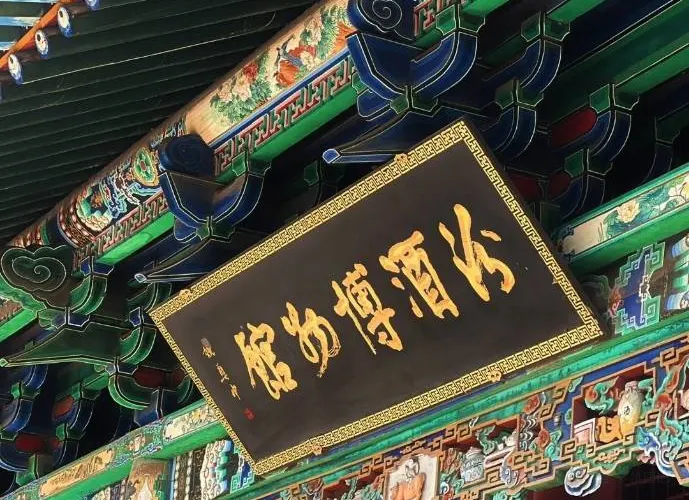 汾酒博物馆